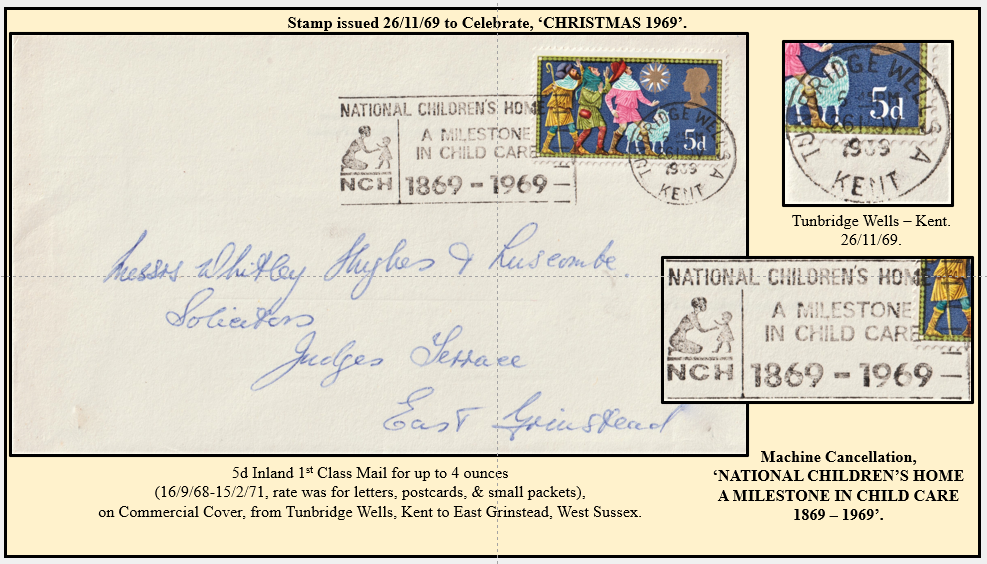 Stamp issued 26/11/69 to Celebrate, ‘CHRISTMAS 1969’.
NATIONAL CHILDREN'S HOME
A MILESTONE
IN CHILD CARE
NCH 1869 - 1969 -
5d
TUNBRIDGE WELLS A
1969
KENT
Messrs Whitley Hughes & Luscombe.
Solicitors
Judges Terrace
East Grinstead
TUNBRIDGE WELLS A
5d
1969
KENT
Tunbridge Wells – Kent.
26/11/69.
NATIONAL CHILDREN'S HOME
A MILESTONE
IN CHILD CARE
NCH 1869 - 1969 -
5d Inland 1st Class Mail for up to 4 ounces
(16/9/68-15/2/71, rate was for letters, postcards, & small packets),
on Commercial Cover, from Tunbridge Wells, Kent to East Grinstead, West Sussex.
Machine Cancellation,
‘NATIONAL CHILDREN’S HOME
A MILESTONE IN CHILD CARE
1869 – 1969’.